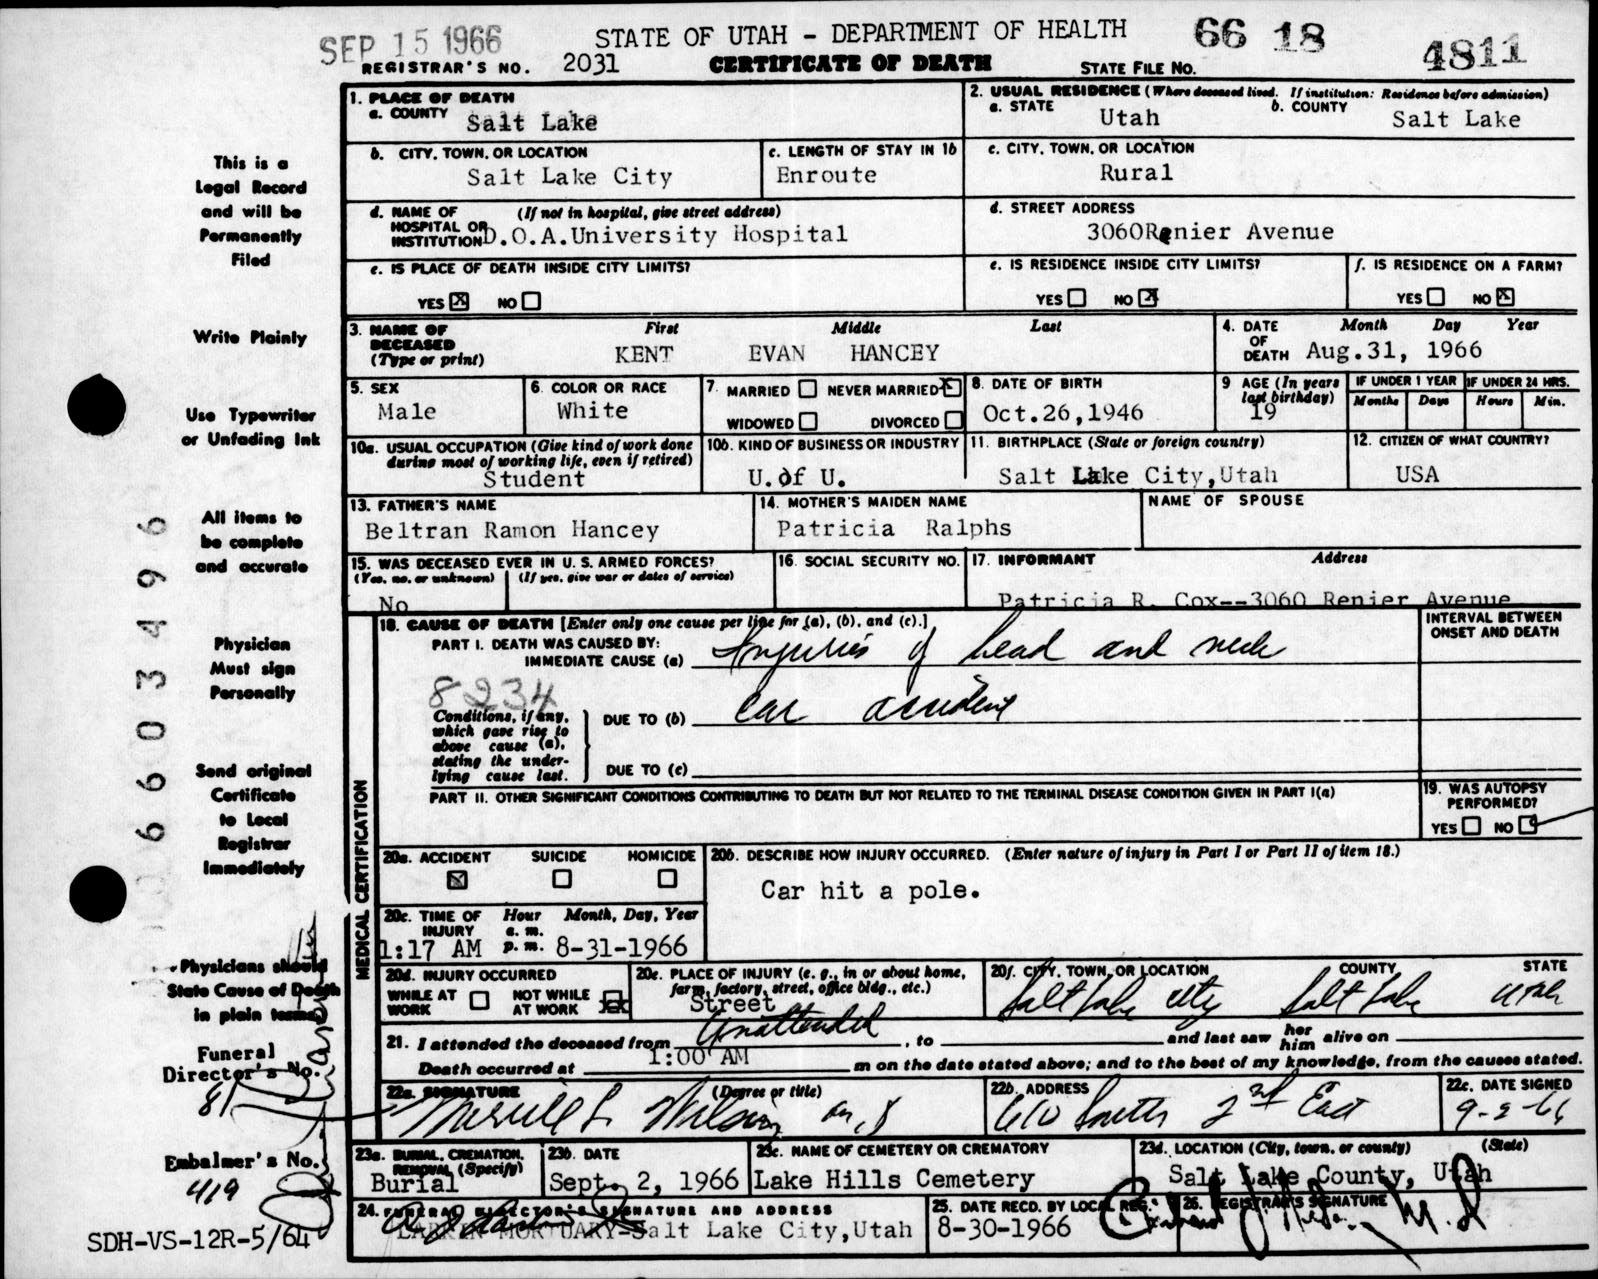 SEP 15 1966
STATE OF UTAH - DEPARTMENT OF HEALTH
66 18
4811
REGISTRAR'S NO. 2031
CERTIFICATE OF DEATH
STATE FILE NO.
1. PLACE OF DEATH
a. COUNTY Salt Lake
2. USUAL RESIDENCE (Where deceased lived. If institution: Residence before admission)
a. STATE Utah
b. COUNTY Salt Lake
b. CITY, TOWN, OR LOCATION
Salt Lake City
c. LENGTH OF STAY IN 1b
Enroute
c. CITY, TOWN, OR LOCATION
Rural
d. NAME OF HOSPITAL OR INSTITUTION (If not in hospital, give street address)
D.O.A.University Hospital
d. STREET ADDRESS
3060Renier Avenue
e. IS PLACE OF DEATH INSIDE CITY LIMITS?
YES X NO
e. IS RESIDENCE INSIDE CITY LIMITS?
YES NO X
f. IS RESIDENCE ON A FARM?
YES NO X
3. NAME OF DECEASED (Type or print)
First Middle Last
KENT EVAN HANCEY
4. DATE OF DEATH
Month Day Year
Aug.31, 1966
5. SEX
Male
6. COLOR OR RACE
White
7. MARRIED NEVER MARRIED X
WIDOWED DIVORCED
8. DATE OF BIRTH
Oct.26,1946
9 AGE (In years last birthday)
19
IF UNDER 1 YEAR
Months Days
IF UNDER 24 HRS.
Hours Min.
10a. USUAL OCCUPATION (Give kind of work done during most of working life, even if retired)
Student
10b. KIND OF BUSINESS OR INDUSTRY
U. of U.
11. BIRTHPLACE (State or foreign country)
Salt Lake City,Utah
12. CITIZEN OF WHAT COUNTRY?
USA
13. FATHER'S NAME
Beltran Ramon Hancey
14. MOTHER'S MAIDEN NAME
Patricia Ralphs
NAME OF SPOUSE
15. WAS DECEASED EVER IN U. S. ARMED FORCES?
(Yes, no, or unknown) (If yes, give war or dates of service)
No
16. SOCIAL SECURITY NO.
17. INFORMANT Address
Patricia R. Cox--3060 Renier Avenue
MEDICAL CERTIFICATION
18. CAUSE OF DEATH [Enter only one cause per line for (a), (b), and (c).]
INTERVAL BETWEEN ONSET AND DEATH
PART I. DEATH WAS CAUSED BY:
IMMEDIATE CAUSE (a) Injuries of head and neck
8234
Conditions, if any, which gave rise to above cause (a), stating the underlying cause last.
DUE TO (b) car accident
DUE TO (c)
PART II. OTHER SIGNIFICANT CONDITIONS CONTRIBUTING TO DEATH BUT NOT RELATED TO THE TERMINAL DISEASE CONDITION GIVEN IN PART I(a)
19. WAS AUTOPSY PERFORMED?
YES NO
20a. ACCIDENT SUICIDE HOMICIDE
X
20b. DESCRIBE HOW INJURY OCCURRED. (Enter nature of injury in Part I or Part II of item 18.)
Car hit a pole.
20c. TIME OF INJURY Hour a. m. p. m. Month, Day, Year
1:17 AM 8-31-1966
20d. INJURY OCCURRED
WHILE AT WORK NOT WHILE AT WORK
20e. PLACE OF INJURY (e. g., in or about home, farm, factory, street, office bldg., etc.)
Street
20f. CITY, TOWN, OR LOCATION COUNTY STATE
Salt Lake City Salt Lake Utah
21. I attended the deceased from Unattended, to and last saw her him alive on
Death occurred at 1:00 AM m on the date stated above; and to the best of my knowledge, from the causes stated.
22a. SIGNATURE (Degree or title)
Merrill L. Wilson M.D
22b. ADDRESS
610 South 2nd East
22c. DATE SIGNED
9-2-66
23a. BURIAL, CREMATION, REMOVAL (Specify)
Burial
23b. DATE
Sept. 2, 1966
23c. NAME OF CEMETERY OR CREMATORY
Lake Hills Cemetery
23d. LOCATION (City, town, or county) (State)
Salt Lake County, Utah
24. FUNERAL DIRECTOR'S SIGNATURE AND ADDRESS
LARKIN MORTUARY-Salt Lake City,Utah
25. DATE RECD. BY LOCAL REG.
8-30-1966
26. REGISTRAR'S SIGNATURE
M.D
This is a
Legal Record
and will be
Permanently
Filed
Write Plainly
Use Typewriter
or Unfading Ink
All items to
be complete
and accurate
Physician
Must sign
Personally
Send original
Certificate
to Local
Registrar
Immediately
Physicians should
State Cause of Death
in plain terms
Funeral
Director's No.
81
Embalmer's No.
419
SDH-VS-12R-5/64
6603496